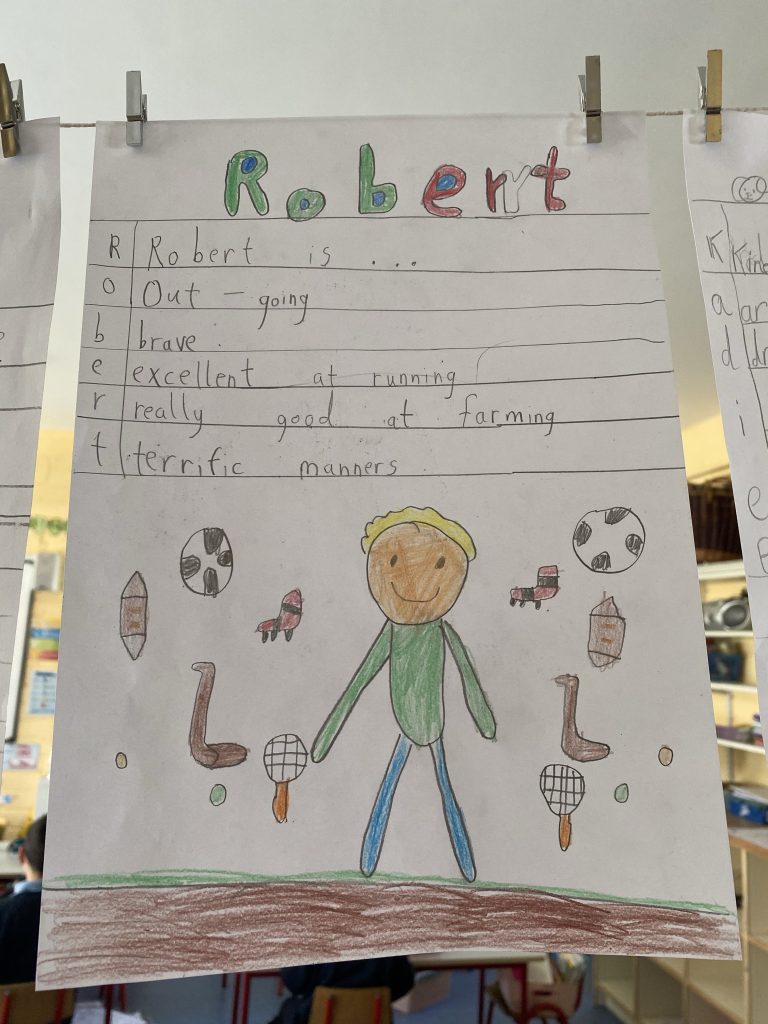 Robert
R Robert is ...
o Out - going
b brave.
e excellent at running
r really good at farming
t terrific manners
K
a
d
i
e